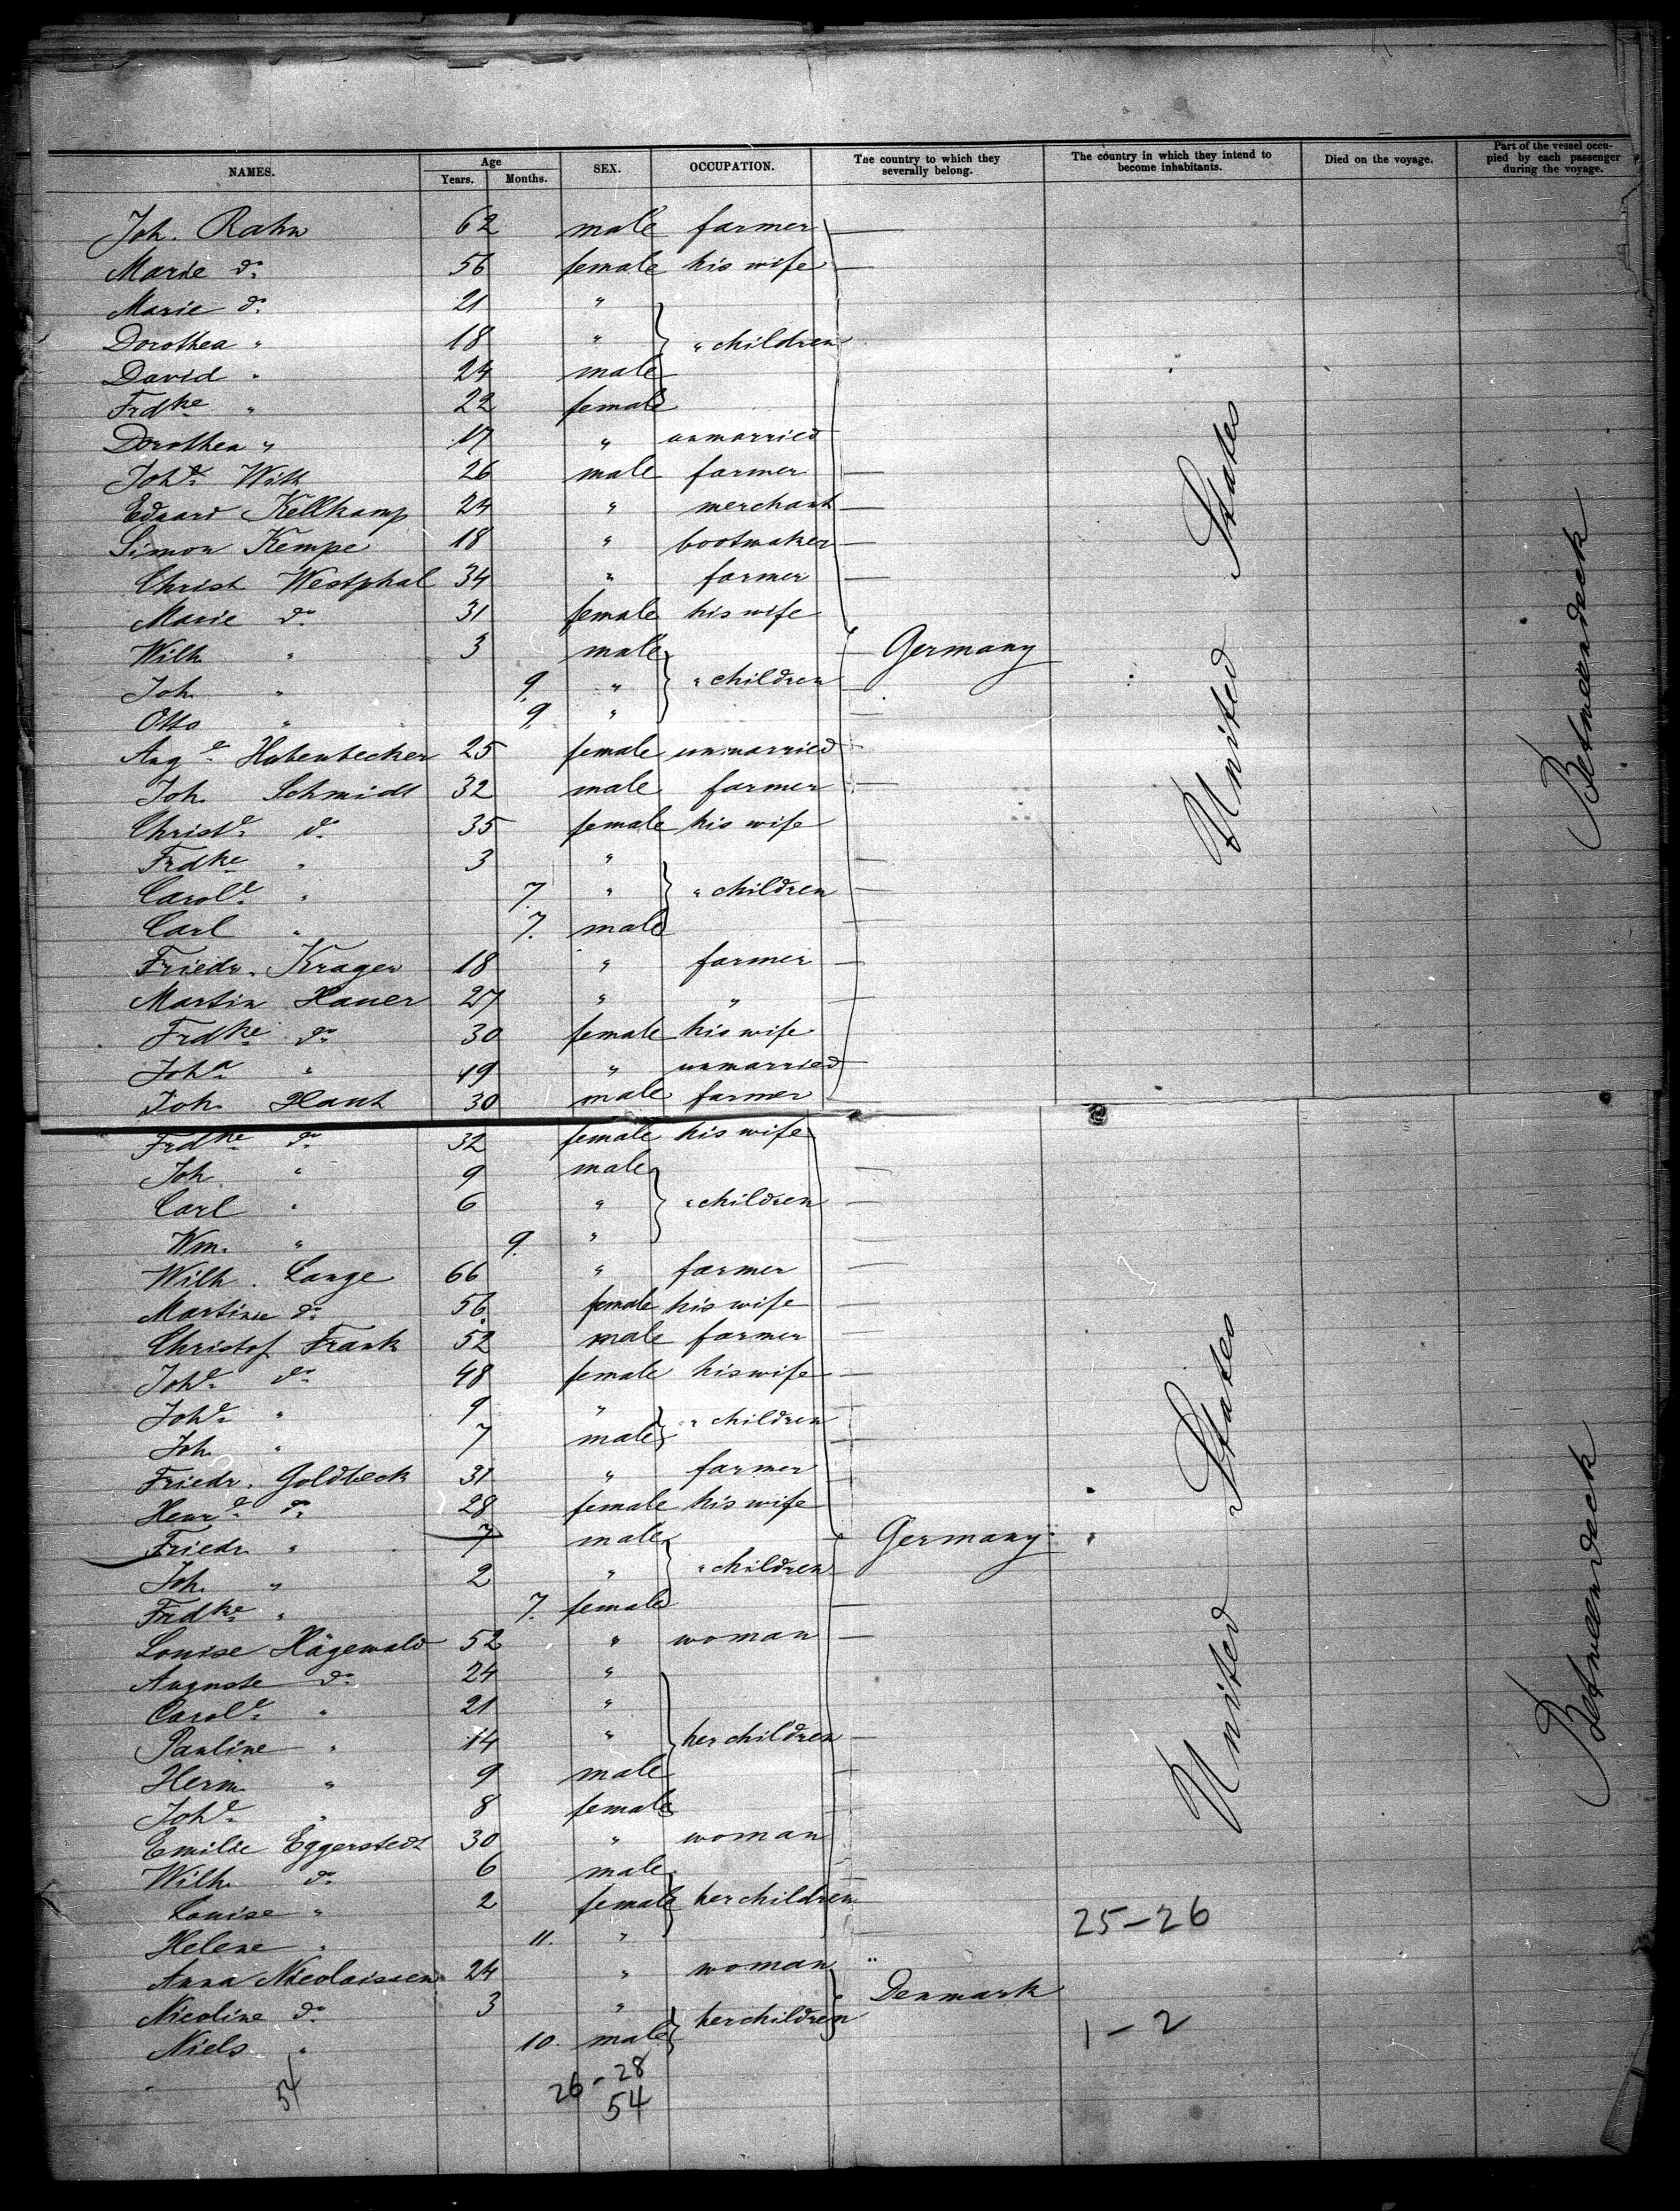 NAMES. Age Years. Months. SEX. OCCUPATION. The country to which they severally belong. The country in which they intend to become inhabitants. Died on the voyage. Part of the vessel occupied by each passenger during the voyage.
Joh. Rahn 62 male farmer
Marie do 56 female his wife
Marie do 21 "
Dorothea " 18 " " children
David " 24 male
Frdke " 22 female
Dorothea " 17 " unmarried
Johe With 26 male farmer
Eduard Kellkamp 24 " merchant
Simon Kempe 18 " bootmaker
Christ Westphal 34 " farmer
Marie do 31 female his wife
Wilh " 3 male Germany
Joh. " 9. " " children
Otto " 9. "
Auge Habenbecker 25 female unmarried
Joh. Schmidt 32 male farmer
Christe do 35 female his wife
Frdke " 3 "
Carole " 7. " " children
Carl " 7. male
Friedr. Krager 18 " farmer
Martin Hauer 27 " "
Frdke do 30 female his wife
Joha " 19 " unmarried
Joh. Hant 30 male farmer
United States
Betweendeck
Frdke do 32 female his wife
Joh. " 9 male
Carl " 6 " " children
Wm. " 9. "
Wilh. Lange 66 " farmer
Martine do 56 female his wife
Christof Frank 52 male farmer
Johe do 48 female his wife
Johe " 9 " " children
Joh. " 7 male
Friedr. Goldbeck 31 " farmer
Henre do 28 female his wife
Friedr " 7 male Germany
Joh. " 2 " " children
Frdke " 7. female
Louise Hägewald 52 " woman
Auguste do 24 "
Carole " 21 "
Pauline " 14 " her children
Herm " 9 male
Johe " 8 female
Emilie Eggerstedt 30 " woman
Wilh. do 6 male
Louise " 2 female her children
Helene " 11. " 25-26
Anna Nicolaissen 24 " woman "
Nicoline do 3 " her children Denmark
Niels " 10. male 1-2
United States
Betweendeck
54 26-28
54